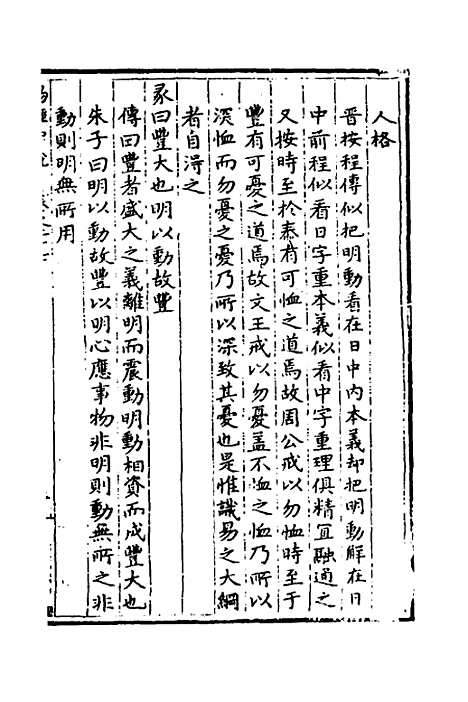 人格
晋按程傳似把明動看在日中内本義却把明動解在日
中前程似看日字重本義似看中字重理俱精宜融通之
又按時至於泰有可恤之道焉故周公戒以勿恤時至于
豐有可憂之道焉故文王戒以勿憂盖不恤之恤乃所以
深恤而勿憂之憂乃所以深致其憂也是惟識易之大綱
者自淂之
彖曰豐大也明以動故豐
傳曰豐者盛大之義離明而震動明動相資而成豐大也
朱子曰明以動故豐以明心應事物非明則動無所之非
動則明無所用